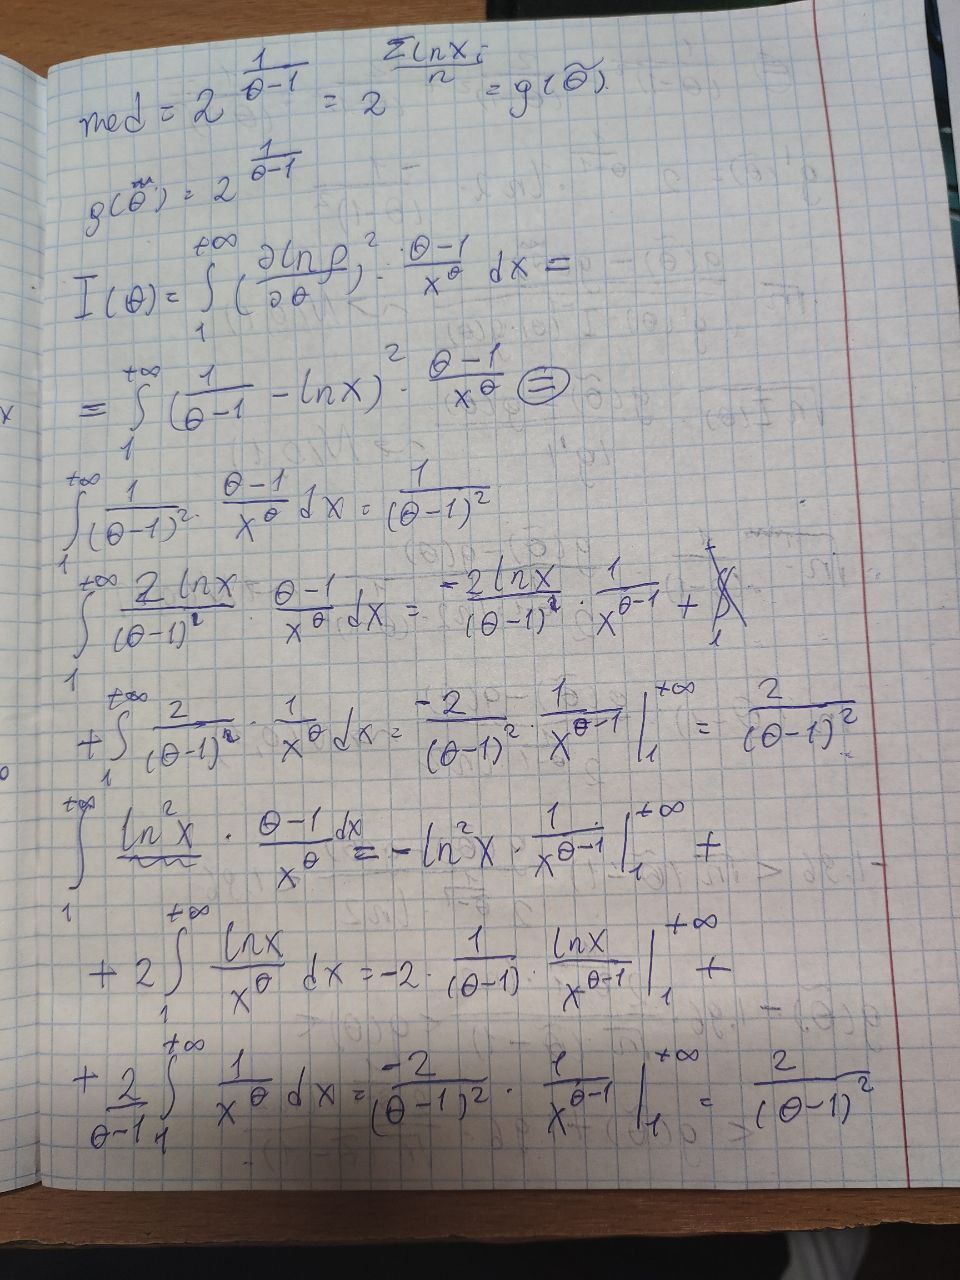 med = 2^{\frac{1}{θ-1}} = 2^{\frac{Σ ln x_i}{n}} = g(\tilde{θ}).
g(\tilde{θ}) = 2^{\frac{1}{θ-1}}
I(θ) = ∫_1^{+∞} (\frac{∂ ln p}{∂θ})^2 · \frac{θ-1}{x^θ} dx =
= ∫_1^{+∞} (\frac{1}{θ-1} - ln x)^2 · \frac{θ-1}{x^θ} =
∫_1^{+∞} \frac{1}{(θ-1)^2} · \frac{θ-1}{x^θ} dx = \frac{1}{(θ-1)^2}
∫_1^{+∞} \frac{2 ln x}{(θ-1)^2} · \frac{θ-1}{x^θ} dx = \frac{-2 ln x}{(θ-1)^2} · \frac{1}{x^{θ-1}} +
+ ∫_1^{+∞} \frac{2}{(θ-1)^2} · \frac{1}{x^θ} dx = \frac{-2}{(θ-1)^2} · \frac{1}{x^{θ-1}} |_1^{+∞} = \frac{2}{(θ-1)^2}
∫_1^{+∞} ln^2 x · \frac{θ-1}{x^θ} dx = - ln^2 x · \frac{1}{x^{θ-1}} |_1^{+∞} +
+ 2 ∫_1^{+∞} \frac{ln x}{x^θ} dx = -2 · \frac{1}{(θ-1)} · \frac{ln x}{x^{θ-1}} |_1^{+∞} +
+ \frac{2}{θ-1} ∫_1^{+∞} \frac{1}{x^θ} dx = \frac{-2}{(θ-1)^2} · \frac{1}{x^{θ-1}} |_1^{+∞} = \frac{2}{(θ-1)^2}